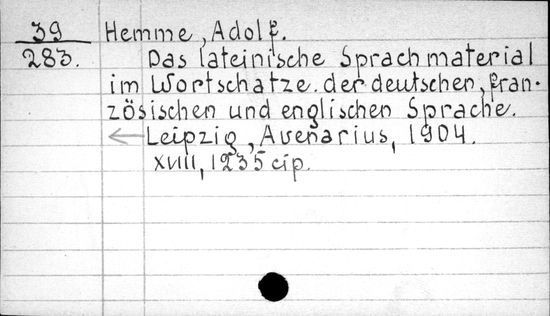 39 Hemme, Adolf.
283. Das lateinische Sprachmaterial
im Wortschatze. der deutschen, fran-
zösischen und englischen Sprache.
Leipzig, Avenarius, 1904.
XVIII, 1235 cip.